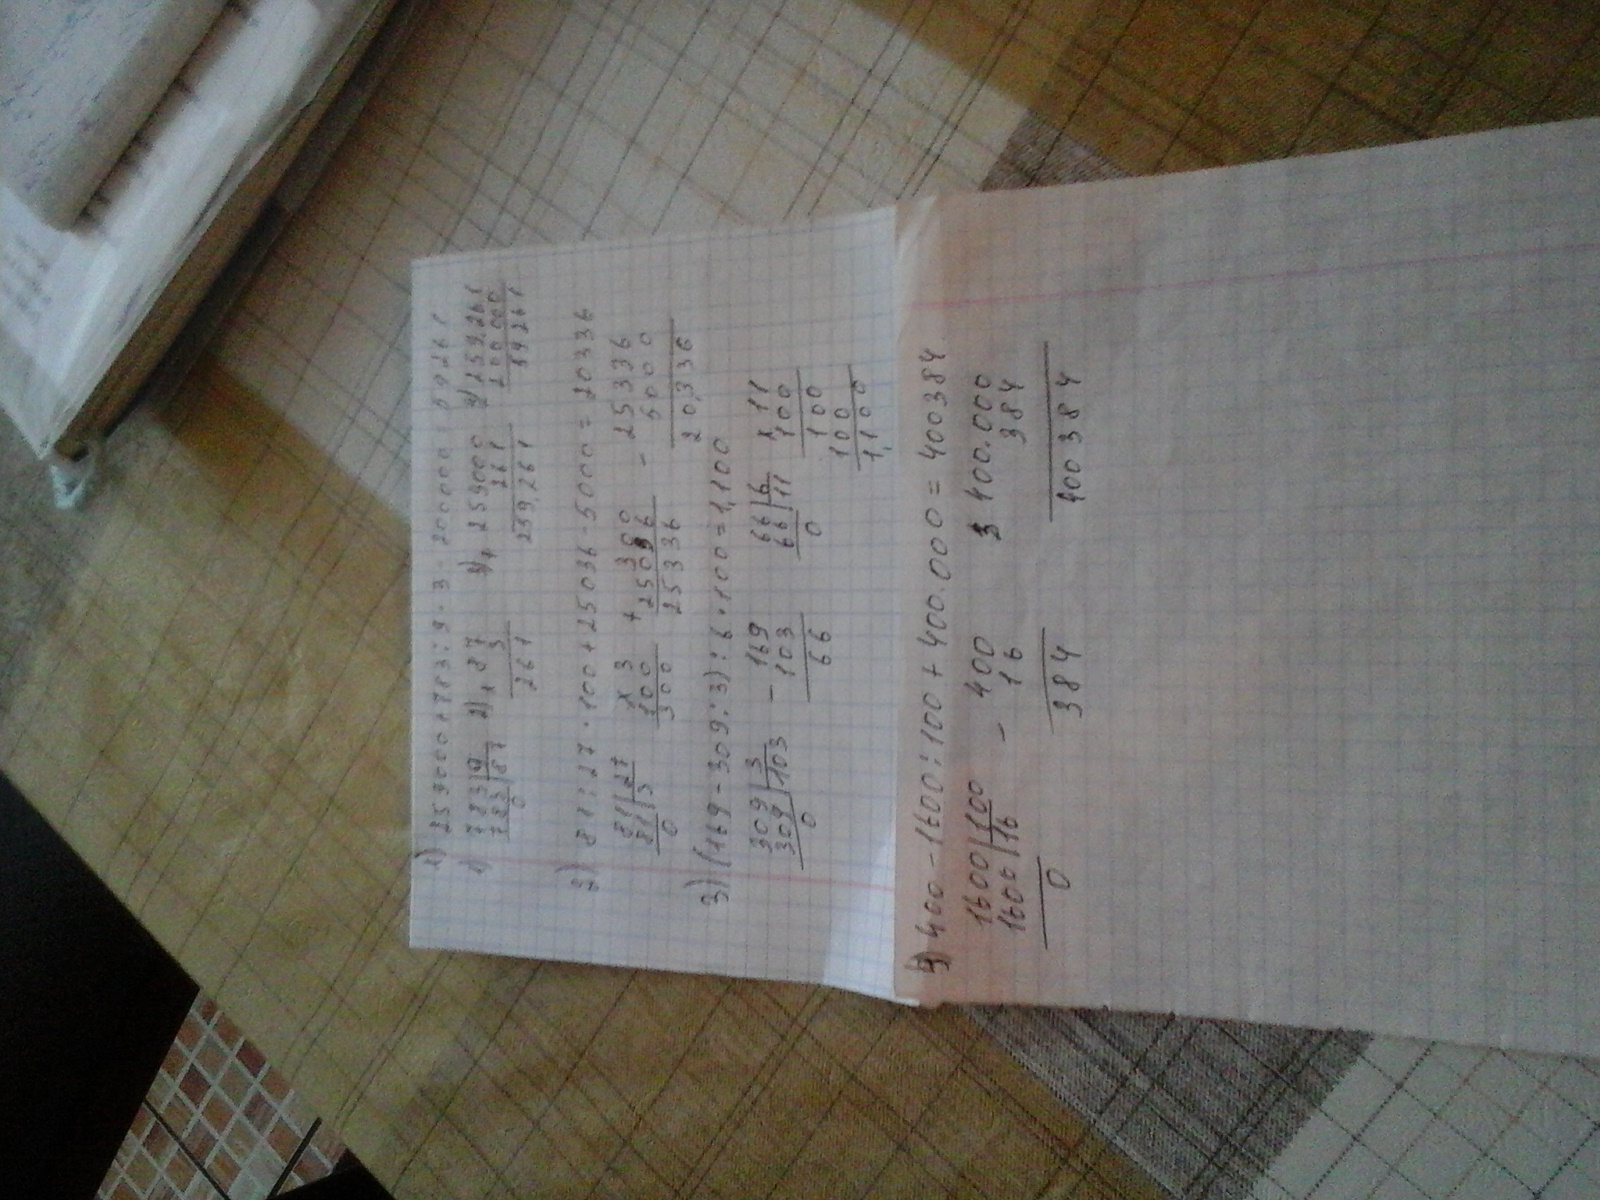 1) 259000+783:9·3-200000=59261
1) 783|9 2) ×87 3) + 259000 4) 259.261
783|87 3 261 200 000
0 261 259,261 59261
2) 81:27·100+25036-5000=20336
81|27 ×3 + 300 - 25336
81|3 100 25036 5000
0 300 25336 20,336
3) (169-309:3):6·100=1,100
309|3 - 169 66|6 ×11
309|103 103 66|11 100
0 66 0 100
100
1,100
4) 400-1600:100+400.000=400384
1600|100 - 400 400.000
1600|16 16 384
0 384 400384